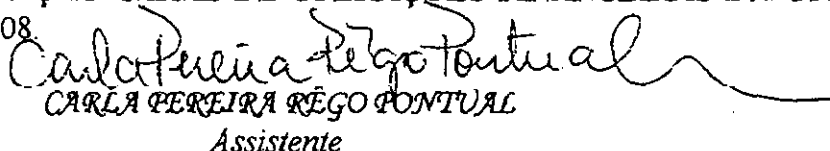 08.
Carla Pereira Rêgo Pontual
CARLA PEREIRA RÊGO PONTUAL
Assistente